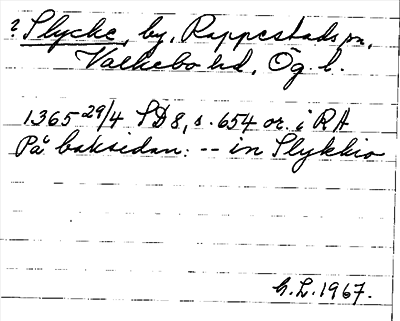 ? Slycke, by, Rappestads sn,
Valkebo hd, Ög. l.
1365 29/4 SD 8, s. 654 or. i RA
På baksidan: -- in Slykkio
G.L. 1967.